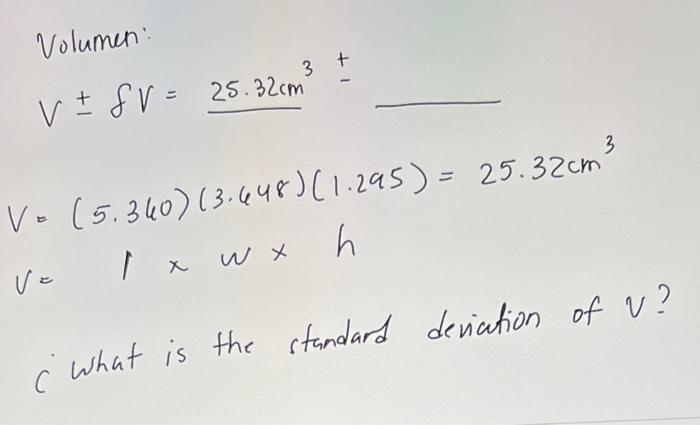 Volumen:
V ± δV = 25.32cm³ ± ________
V = (5.360)(3.648)(1.295) = 25.32cm³
V = l x w x h
¿ What is the standard deviation of V?